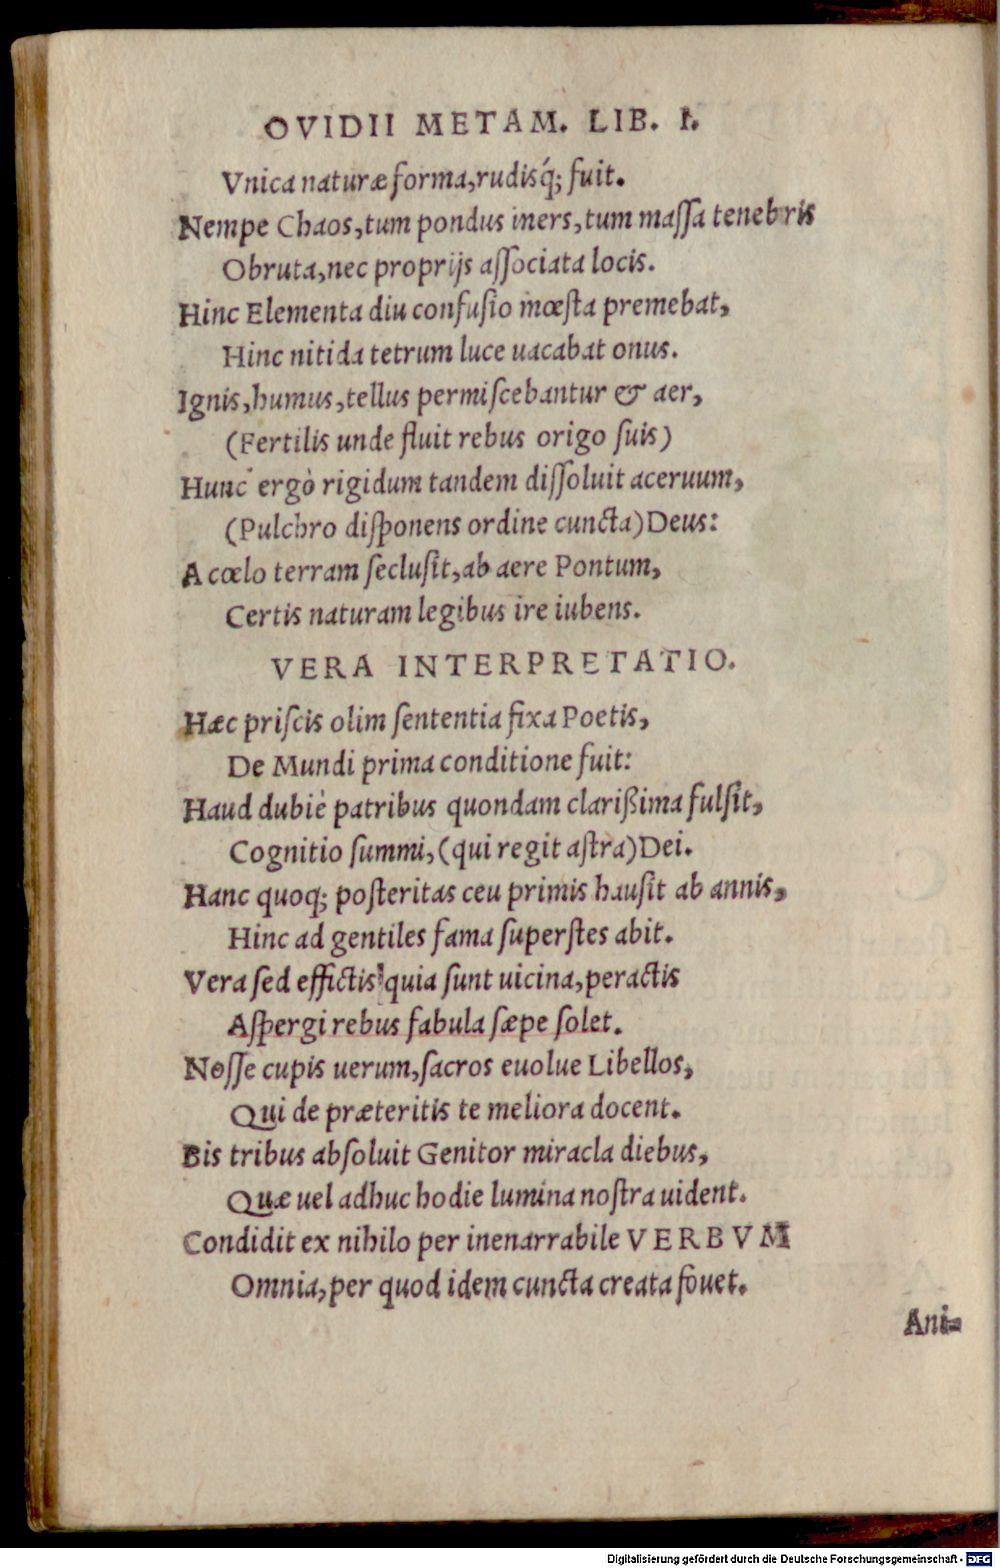 OVIDII METAM. LIB. I.
Vnica naturæ forma, rudisq́; fuit.
Nempe Chaos, tum pondus iners, tum maſſa tenebris
Obruta, nec proprijs aſſociata locis.
Hinc Elementa diu confuſio mœſta premebat,
Hinc nitida tetrum luce uacabat onus.
Ignis, humus, tellus permiſcebantur & aer,
(Fertilis unde fluit rebus origo ſuis)
Hunc ergò rigidum tandem diſſoluit aceruum,
(Pulchro diſponens ordine cuncta) Deus:
A cœlo terram ſecluſit, ab aere Pontum,
Certis naturam legibus ire iubens.
VERA INTERPRETATIO.
Hæc priſcis olim ſententia fixa Poetis,
De Mundi prima conditione fuit:
Haud dubiè patribus quondam clarißima fulſit,
Cognitio ſummi, (qui regit aſtra) Dei.
Hanc quoq; poſteritas ceu primis hauſit ab annis,
Hinc ad gentiles fama ſuperſtes abit.
Vera ſed effictis quia ſunt uicina, peractis
Aſpergi rebus fabula ſæpe ſolet.
Noſſe cupis uerum, ſacros euolue Libellos,
Qui de præteritis te meliora docent.
Bis tribus abſoluit Genitor miracla diebus,
Quæ uel adhuc hodie lumina noſtra uident.
Condidit ex nihilo per inenarrabile VERBVM
Omnia, per quod idem cuncta creata fouet.
Ani-
Digitalisierung gefördert durch die Deutsche Forschungsgemeinschaft - DFG